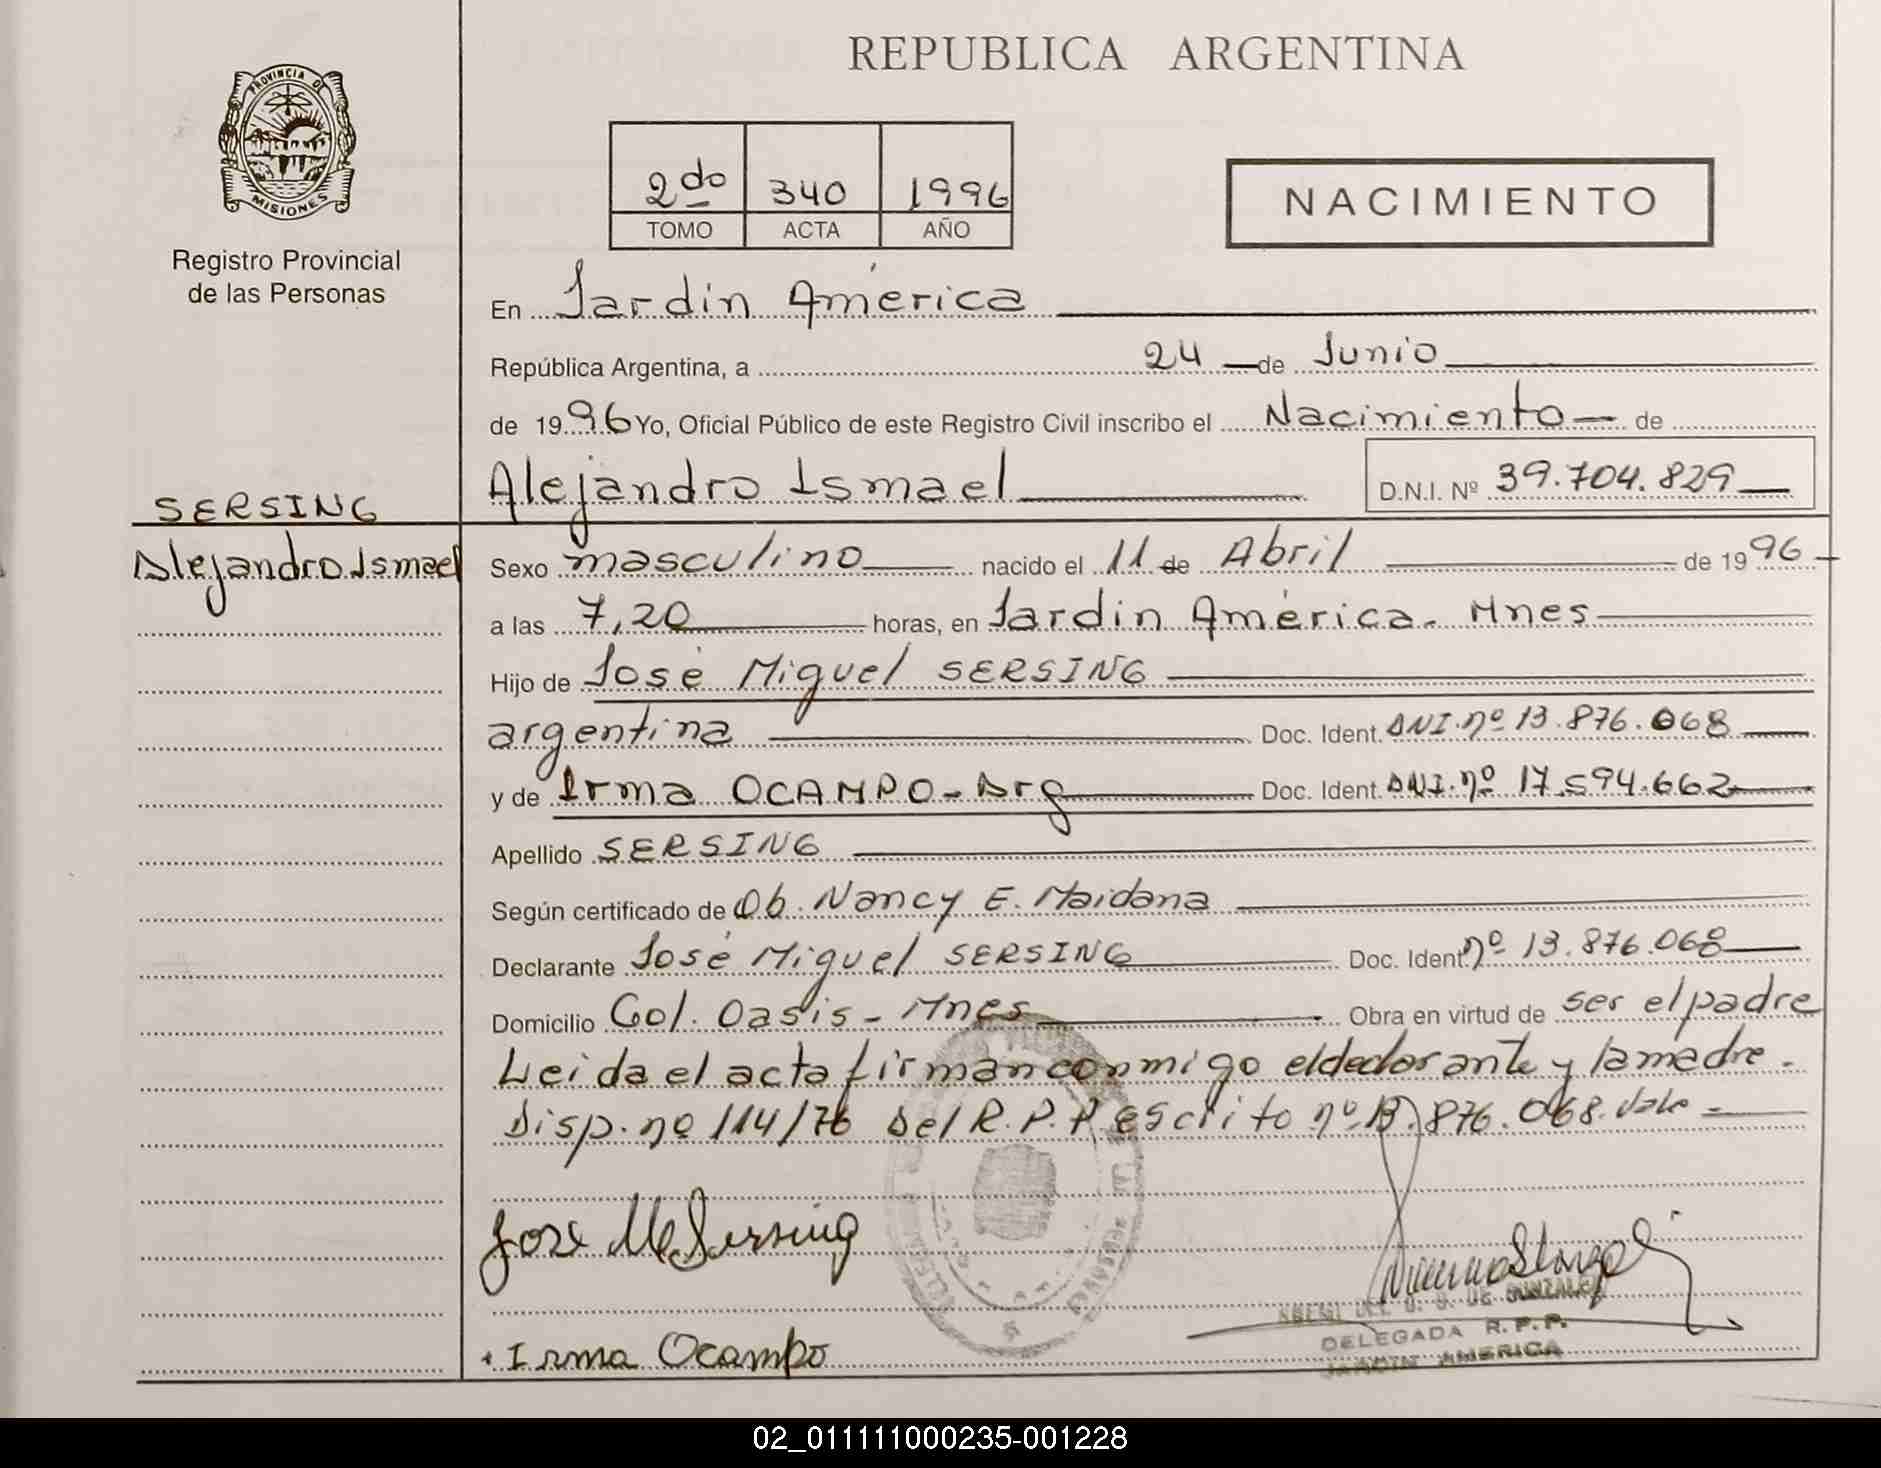 REPUBLICA ARGENTINA
PROVINCIA DE
MISIONES
Registro Provincial
de las Personas
2do 340 1996
TOMO ACTA AÑO
NACIMIENTO
En Jardin América
República Argentina, a 24 de Junio
de 1996 Yo, Oficial Público de este Registro Civil inscribo el Nacimiento de
Alejandro Ismael D.N.I. Nº 39.704.829
SERSING
Alejandro Ismael
Sexo masculino nacido el 11 de Abril de 1996
a las 7,20 horas, en Jardin América. Mnes
Hijo de José Miguel SERSING
argentina Doc. Ident. DNI. nº 13.876.068
y de Irma OCAMPO - Arg Doc. Ident. DNI. nº 17.594.662
Apellido SERSING
Según certificado de Ob. Nancy E. Maidana
Declarante José Miguel SERSING Doc. Ident. nº 13.876.068
Domicilio Col. Oasis - Mnes Obra en virtud de ser el padre
Leida el acta firman conmigo el declarante y la madre.
Disp. nº 114/76 Del R.P.P. escrito nº 13.876.068. Vale
Jose M. Sersing
Irma Ocampo
DE GONZALEZ
DELEGADA R.P.P.
JARDIN AMERICA
02_011111000235-001228